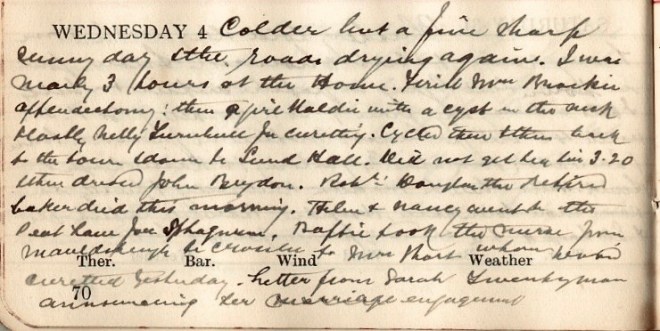 WEDNESDAY 4 Colder but a fine sharp
sunny day & the roads drying again. I was
nearly 3 hours at the Home. First Mrs
appendectomy: then a girl with a cyst in the neck
& lastly Nelly Turnbull for curetting. Cycled there & then back
to the town & down to Hall. Did not get here till 3.20
& then dressed John Robt. Douglas the retired
baker died this morning. Helen & Nancy went to the
Peat Lane for Sphagnum. took the nurse from
to to Mrs Short whom he and
curetted yesterday. Letter from Sarah Twentyman
Ther. Bar. Wind Weather
70
announcing her marriage engagement